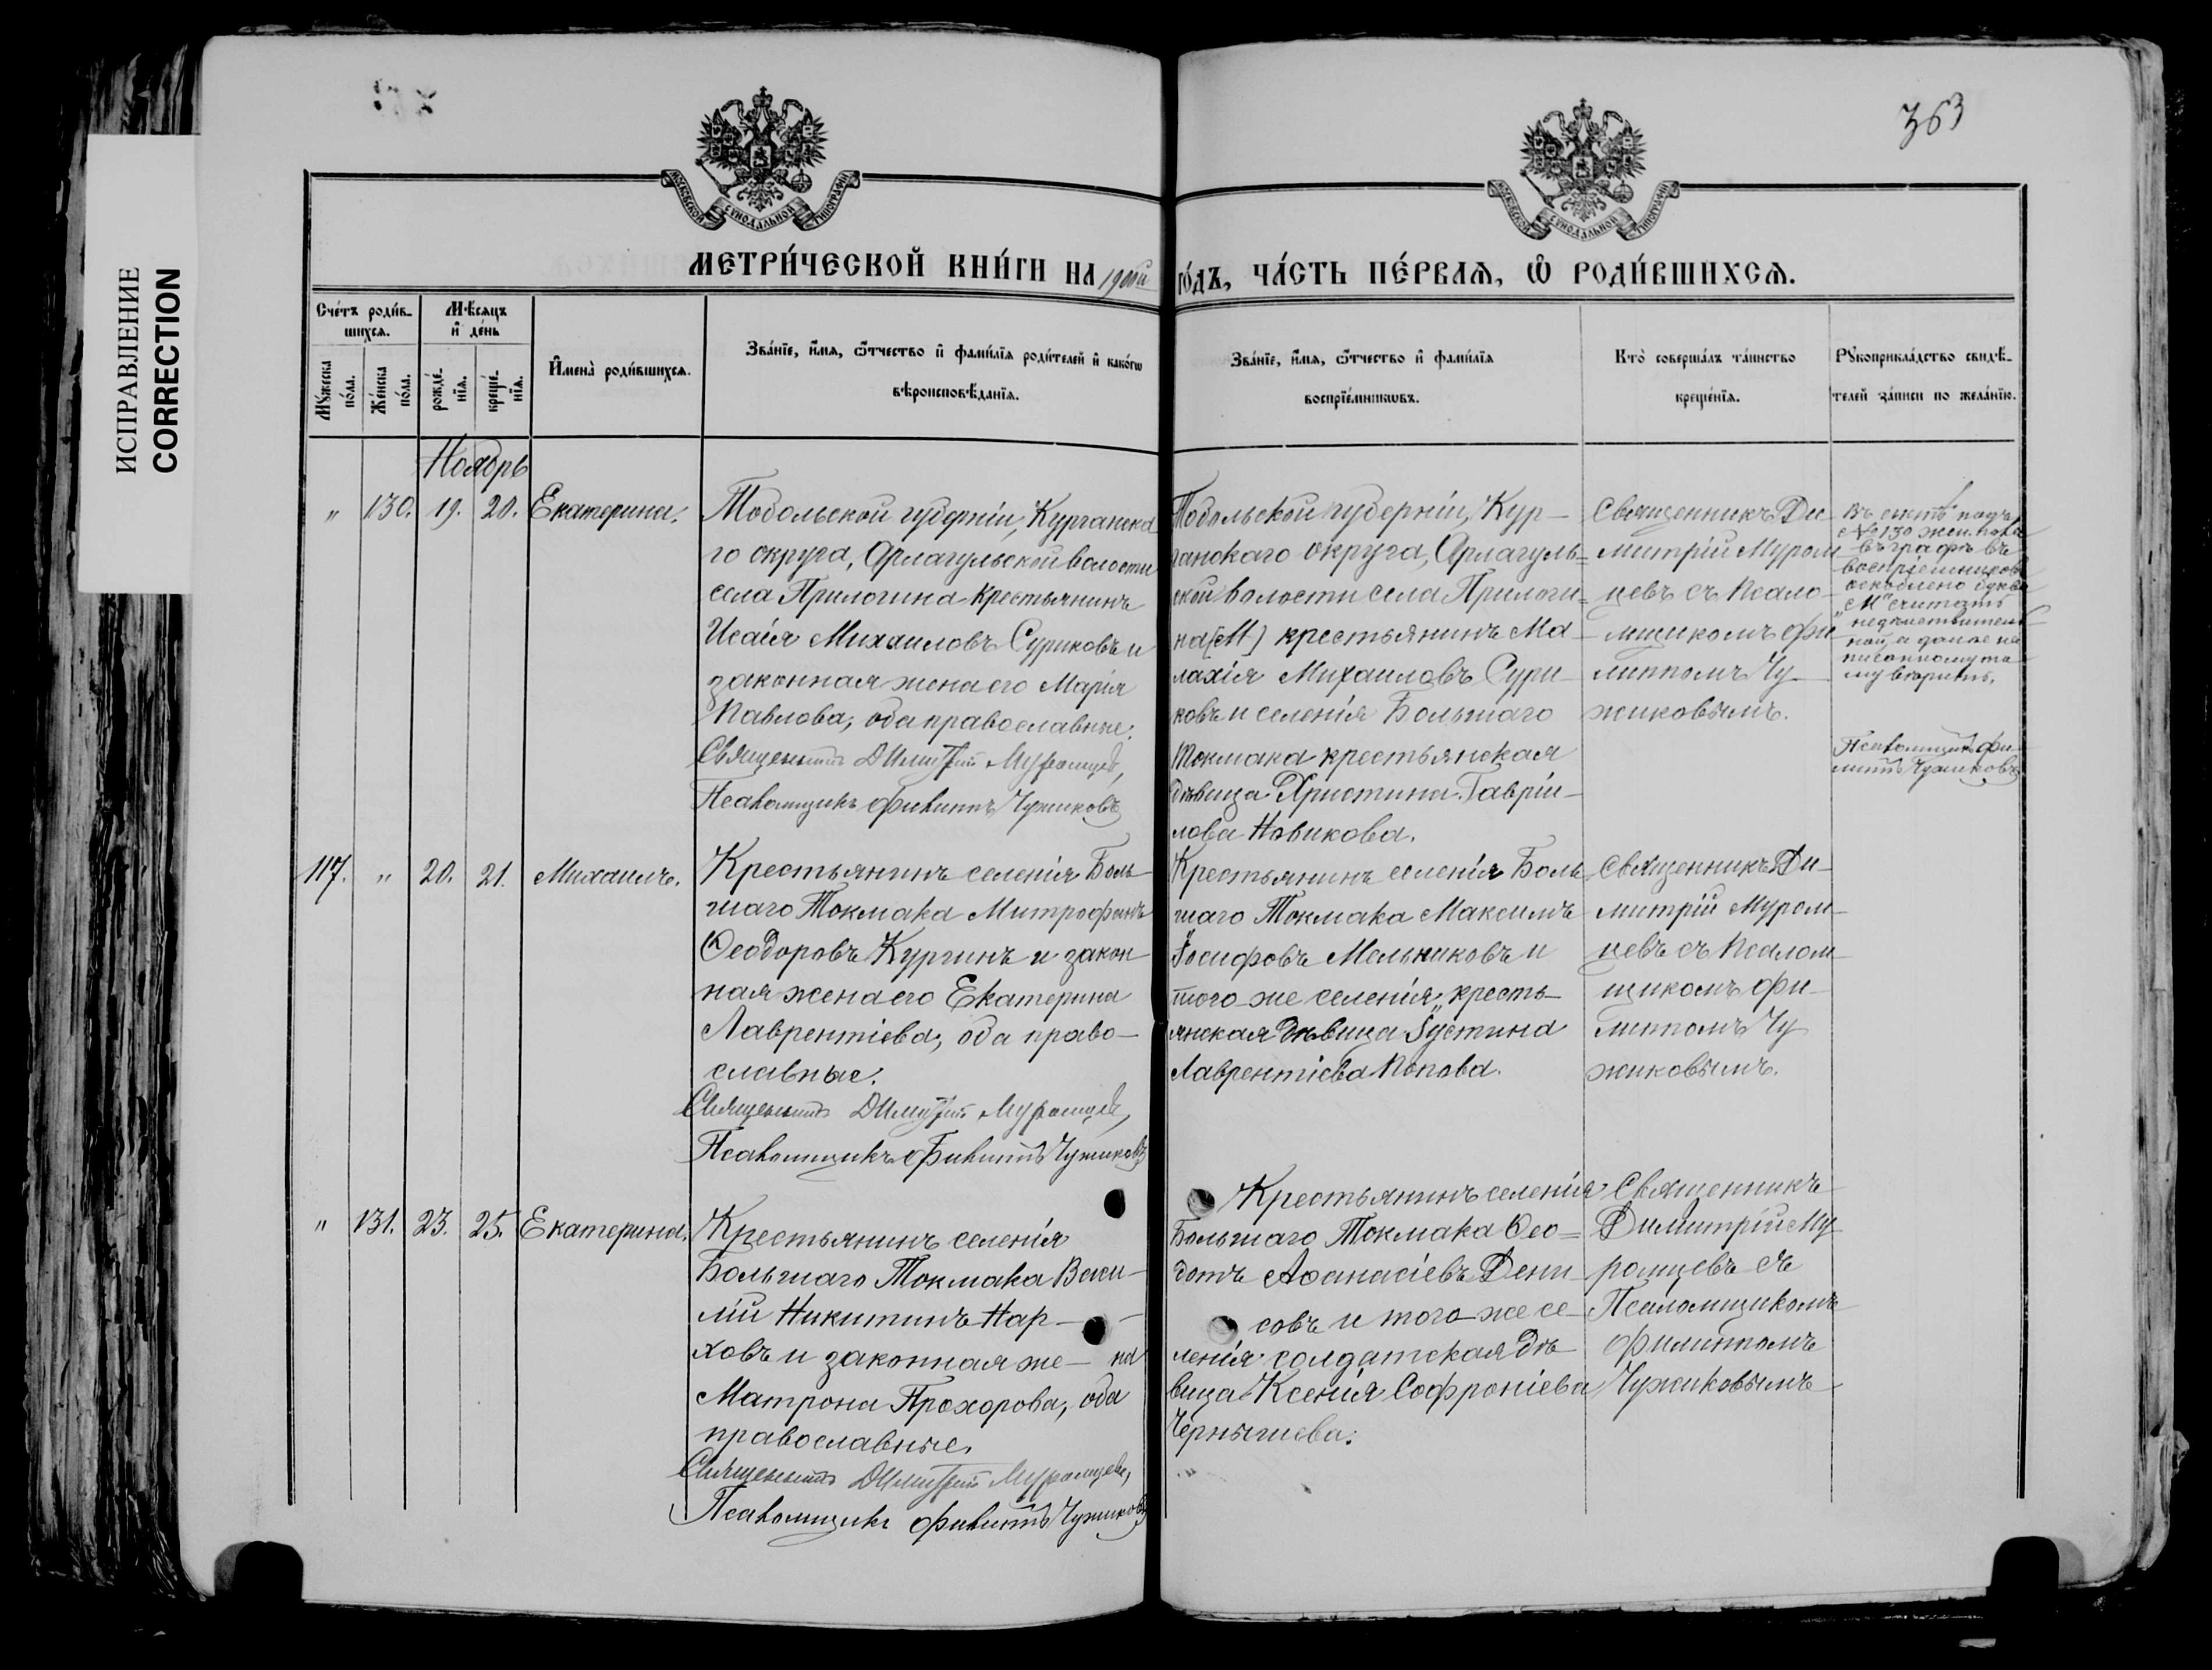 ИСПРАВЛЕНИЕ
CORRECTION
363
МОСКОВСКОЙ СѴНОДАЛЬНОЙ ТИПОГРАФІИ
МОСКОВСКОЙ СѴНОДАЛЬНОЙ ТИПОГРАФІИ
МЕТРИ́ЧЕСКОЙ КНИ́ГИ НА 1900й ГО́ДЪ, ЧА́СТЬ ПЕ́РВАѦ, Ѽ РОДИ́ВШИХСѦ.
Сче́тъ роди́в-
шихсѧ.
Мꙋ́жеска
по́ла.
Же́нска
по́ла.
Мѣ́сѧцъ
и҆ де́нь
рожде́-
нїѧ.
креще́-
нїѧ.
И҆мена̀ роди́вшихсѧ.
Зва́нїе, и҆́мѧ, ѻ҆́тчество и҆ фамѝлїѧ роди́телей и҆ како́гѡ
вѣроисповѣ́данїѧ.
Зва́нїе, и҆́мѧ, ѻ҆́тчество и҆ фамѝлїѧ
воспрїе́мникѡвъ.
Кто̀ соверша́лъ та́инство
креще́нїѧ.
Рꙋкоприкла́дство свидѣ́-
телей за́писи по жела́нїю.
Ноябрь
" 130. 19. 20. Екатерина.
Тобольской губерніи, Курганска
го округа, Арлагульской волости
села Прилогина крестьянинъ
Исаія Михаиловъ Суриковъ и
законная жена его Марія
Павлова, оба православные.
Священникъ Димитрій Муромцевъ,
Псаломщикъ Филиппъ Чужиковъ
Тобольской губерніи, Кур-
ганскаго округа, Арлагуль-
ской волости села Прилоги-
на (М) крестьянинъ Ма-
лахія Михаиловъ Сури-
ковъ и селенія Большаго
Токмака крестьянская
дѣвица Христина Гавріи-
лова Новикова.
Священникъ Ди-
митрій Муром-
цевъ съ Псало-
мщикомъ Фи-
липпомъ Чу-
жиковымъ.
Въ счетѣ подъ
№ 130 жен. пола
въ графѣ въ
воспріемниковъ
оскоблено буква
"М" считать
недѣйствитель
ной, а далее на
писанному та
му вѣрить.
Псаломщикъ Фи-
липпъ Чужиковъ
117. " 20. 21. Михаилъ.
Крестьянинъ селенія Боль-
шаго Токмака Митрофанъ
Ѳеодоровъ Кургинъ и закон-
ная жена его Екатерина
Лаврентіева, оба право-
славные.
Священникъ Димитрій Муромцевъ,
Псаломщикъ Филиппъ Чужиковъ
Крестьянинъ селенія Боль
шаго Токмака Максимъ
Іосифовъ Мельниковъ и
того-же селенія, кресть-
янская дѣвица Іустина
Лаврентіева Попова.
Священникъ Ди-
митрій Муром-
цевъ съ Псалом-
щикомъ Фи-
липпомъ Чу
жиковымъ.
" 131. 23. 25. Екатерина.
Крестьянинъ селенія
Большаго Токмака Васи-
лій Никитинъ Нар-
ховъ и законная же- на
Матрона Прохорова, оба
православные.
Священникъ Димитрій Муромцевъ,
Псаломщикъ Филиппъ Чужиковъ
Крестьянинъ селенія
Большаго Токмака Ѳео-
дотъ Аѳанасіевъ Дени-
совъ и того-же се-
ленія солдатская дѣ-
вица Ксенія Софроніева
Чернышева.
Священникъ
Димитрій Му-
ромцевъ съ
Псаломщикомъ
Филиппомъ
Чужиковымъ